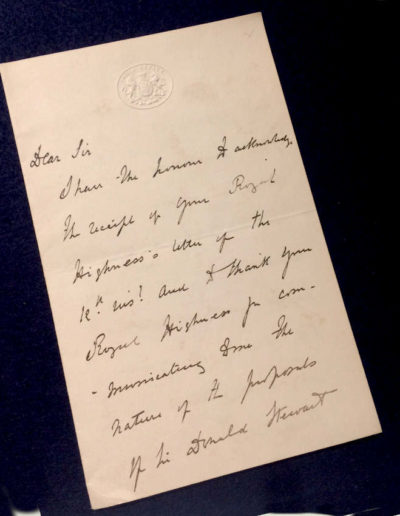 Dear Sir
I have the honour to acknowledge
the receipt of your Royal
Highness's letter of the
12th inst and I thank your
Royal Highness for com-
-municating to me the
nature of the proposals
of Sir Donald Stewart